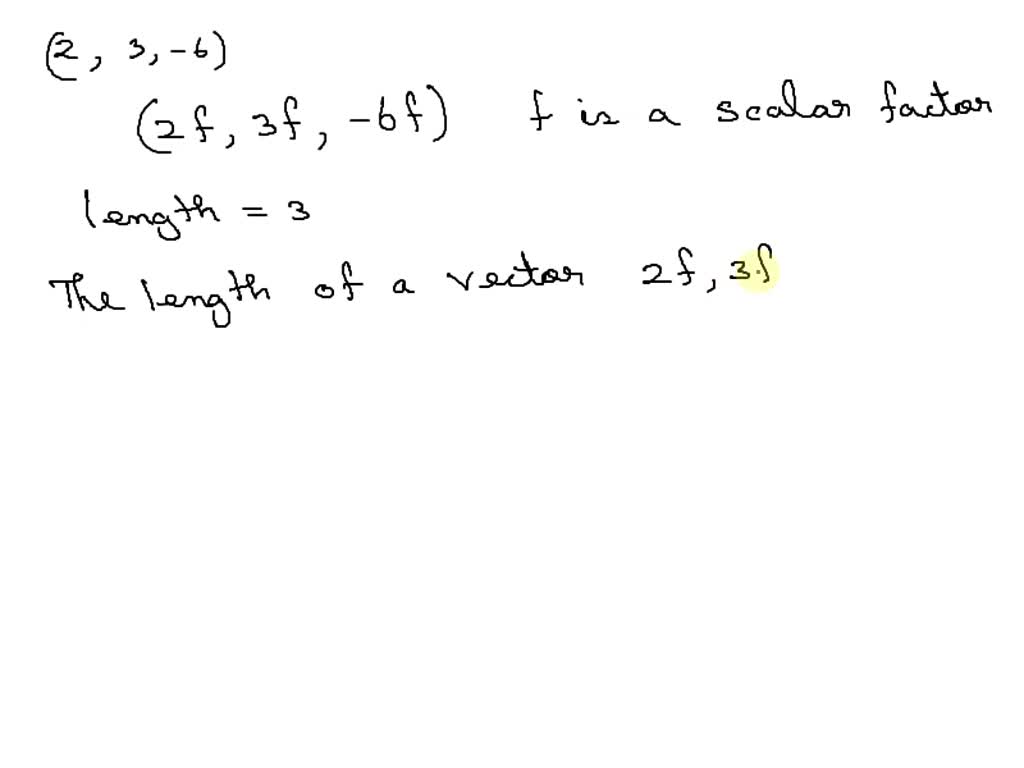 (2, 3, -6)
(2f, 3f, -6f) f is a scalar factor
length = 3
The length of a vector 2f, 3f